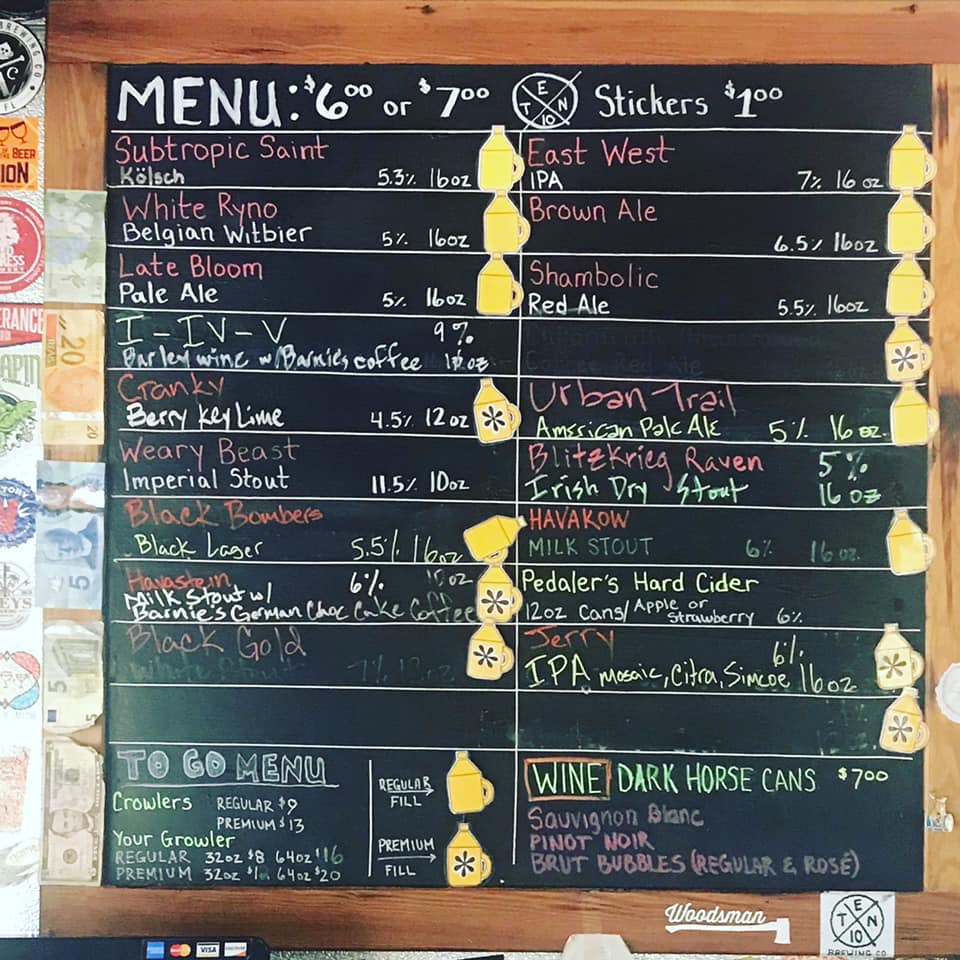 MENU: $6.00 or $7.00
TEN 10 Stickers $1.00
Subtropic Saint
Kölsch 5.3% 16oz
White Ryno
Belgian Witbier 5% 16oz
Late Bloom
Pale Ale 5% 16oz
I-IV-V 9%
Barley wine w/Barnie's coffee oz
Cranky
Berry Key Lime 4.5% 12oz
Weary Beast
Imperial Stout 11.5% 10oz
Black Bombers
Black Lager 5.5% 16oz
Havastein 6% oz
Milk Stout w/
Barnie's German Choc Cake Coffee
Black Gold
East West
IPA 7% 16 oz
Brown Ale
6.5% 16oz
Shambolic
Red Ale 5.5% 16oz
Urban Trail
American Pale Ale 5% 16 oz.
Blitzkrieg Raven 5%
Irish Dry Stout 16 oz
HAVAKOW
MILK STOUT 6% 16 oz.
Pedaler's Hard Cider
12oz Cans/Apple or
Strawberry 6%
Jerry 6%
IPA Mosaic, Citra, Simcoe 16oz
TO GO MENU
Crowlers REGULAR $9
PREMIUM $13
Your Growler
REGULAR 32oz $8 64oz $16
PREMIUM 32oz 64oz $20
REGULAR
FILL
PREMIUM
FILL
WINE DARK HORSE CANS $7.00
Sauvignon Blanc
PINOT NOIR
BRUT BUBBLES (REGULAR & ROSÉ)
Woodsman
TEN 10
BREWING CO
VISA
20
20
5
5